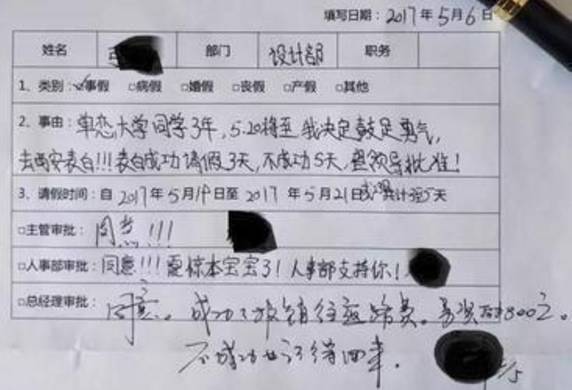 填写日期：2017年5月6日
姓名 部门 设计部 职务
1、类别：☑事假 □病假 □婚假 □丧假 □产假 □其他
2、事由：单恋大学同学3年，5.20将至 我决定鼓足勇气，
去西安表白!!!表白成功请假3天，不成功5天，望领导批准!
3、请假时间：自2017年5月19日至2017年5月21日 共计3至5天
□主管审批：同意!!!
□人事部审批：同意!!! 震惊本宝宝了! 人事部支持你!
□总经理审批：同意。成功了报销往返路费。另奖励800元。
不成功也记得回来。
/5